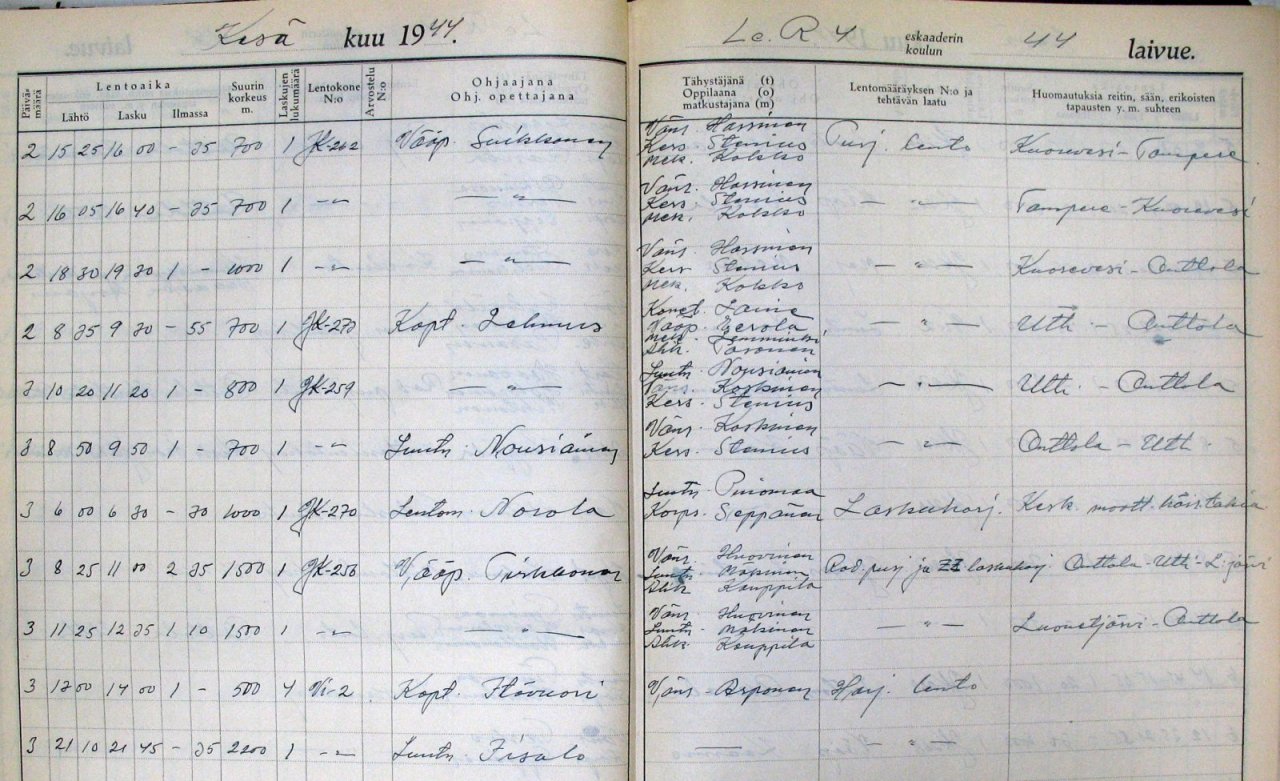 Kesä kuu 1944.
Le. R 4 eskaaderin koulun 44 laivue.
Päivämäärä
Lentoaika
Lähtö Lasku Ilmassa
Suurin korkeus m.
Laskujen lukumäärä
Lentokone N:o
Arvostelu N:o
Ohjaajana
Ohj. opettajana
Tähystäjänä (t)
Oppilaana (o)
matkustajana (m)
Lentomääräyksen N:o ja tehtävän laatu
Huomautuksia reitin, sään, erikoisten tapausten y. m. suhteen
2 15 25 16 00 - 35 700 1 JK-262 Vääp. Suikkonen
Väns. Hassinen
Kers. Stenius
mek. Kokko
Purj. lento Kuorevesi - Tampere.
2 16 05 16 40 - 35 700 1 -"- -"-
Väns. Hassinen
Kers. Stenius
mek. Kokko
-"- Tampere - Kuorevesi
2 18 30 19 30 1 - 1000 1 -"- -"-
Väns. Hassinen
Kers. Stenius
mek. Kokko
-"- Kuorevesi - Onttola
2 8 35 9 30 - 55 700 1 JK-270 Kapt. Lehmus
Laine
Vääp. Eerola
mek. Lemminki
-"- Utti - Onttola
3 10 20 11 20 1 - 800 1 JK-259 -"-
Luutn. Nousiainen
Väns. Koskinen
Kers. Stenius
-"- Utti - Onttola
3 8 50 9 50 1 - 700 1 -"- Luutn. Nousiainen
Väns. Koskinen
Kers. Stenius
-"- Onttola - Utti
3 6 00 6 30 - 30 1000 1 JK-270 Lentom. Norola
Luutn. Puromaa
Korpr. Seppänen
Laskuharj. Kesk. moott.
3 8 25 11 00 2 35 1500 1 JK-256 Vääp. Pirhonen
Väns. Huovinen
Luutn. Mäkinen
Alik. Kauppila
Rad. purj. ja ZZ laskuharj. Onttola - Utti - L:järvi
3 11 25 12 35 1 10 1500 1 -"- -"-
Väns. Huovinen
Luutn. Mäkinen
Alik. Kauppila
-"- Luonetjärvi - Onttola
3 13 00 14 00 1 - 500 4 Vi-2 Kapt. Hävuori
Väns. Asponen Harj. lento
3 21 10 21 45 - 35 2200 1 -"- Luutn. Iisalo
- -"-